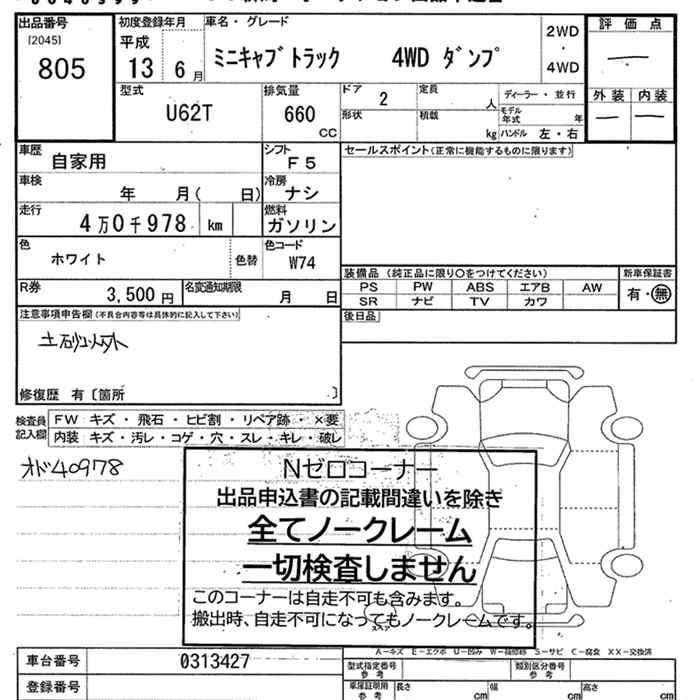 出品番号
[2045]
805
初度登録年月
平成
13 6月
車名・グレード
ミニキャブトラック 4WD ダンプ
2WD
・
4WD
評価点
—
外装 内装
— —
型式
U62T
排気量
660
CC
ドア 2
定員 人
ディーラー・並行
形状
積載 kg
モデル年式 年
ハンドル 左・右
車歴
自家用
シフト
F5
セールスポイント(正常に機能するものに限ります)
車検
年 月( 日)
冷房
ナシ
走行
4万0千978 km
燃料
ガソリン
色
ホワイト
色替
色コード
W74
装備品 (純正品に限り〇をつけてください)
新車保証書
PS PW ABS エアB AW
有・無
SR ナビ TV カワ
R券
3,500円
名変通知期限
月 日
後日品
注意事項申告欄(不具合内容等は具体的に記入して下さい)
土砂以外
修復歴 有〔箇所 〕
検査員
記入欄
FW キズ・飛石・ヒビ割・リペア跡・×要
内装 キズ・汚レ・コゲ・穴・スレ・キレ・破レ
オド40978
Nゼロコーナー
出品申込書の記載間違いを除き
全てノークレーム
一切検査しません
このコーナーは自走不可も含みます。
搬出時、自走不可になってもノークレームです。
スペア
A-キズ E-エクボ U-凹み W-補修跡 S-サビ C-腐食 XX-交換済
車台番号
0313427
型式指定番号
参考
類別区分番号
参考
登録番号
車庫証明用
参考
長さ cm
幅 cm
高さ cm